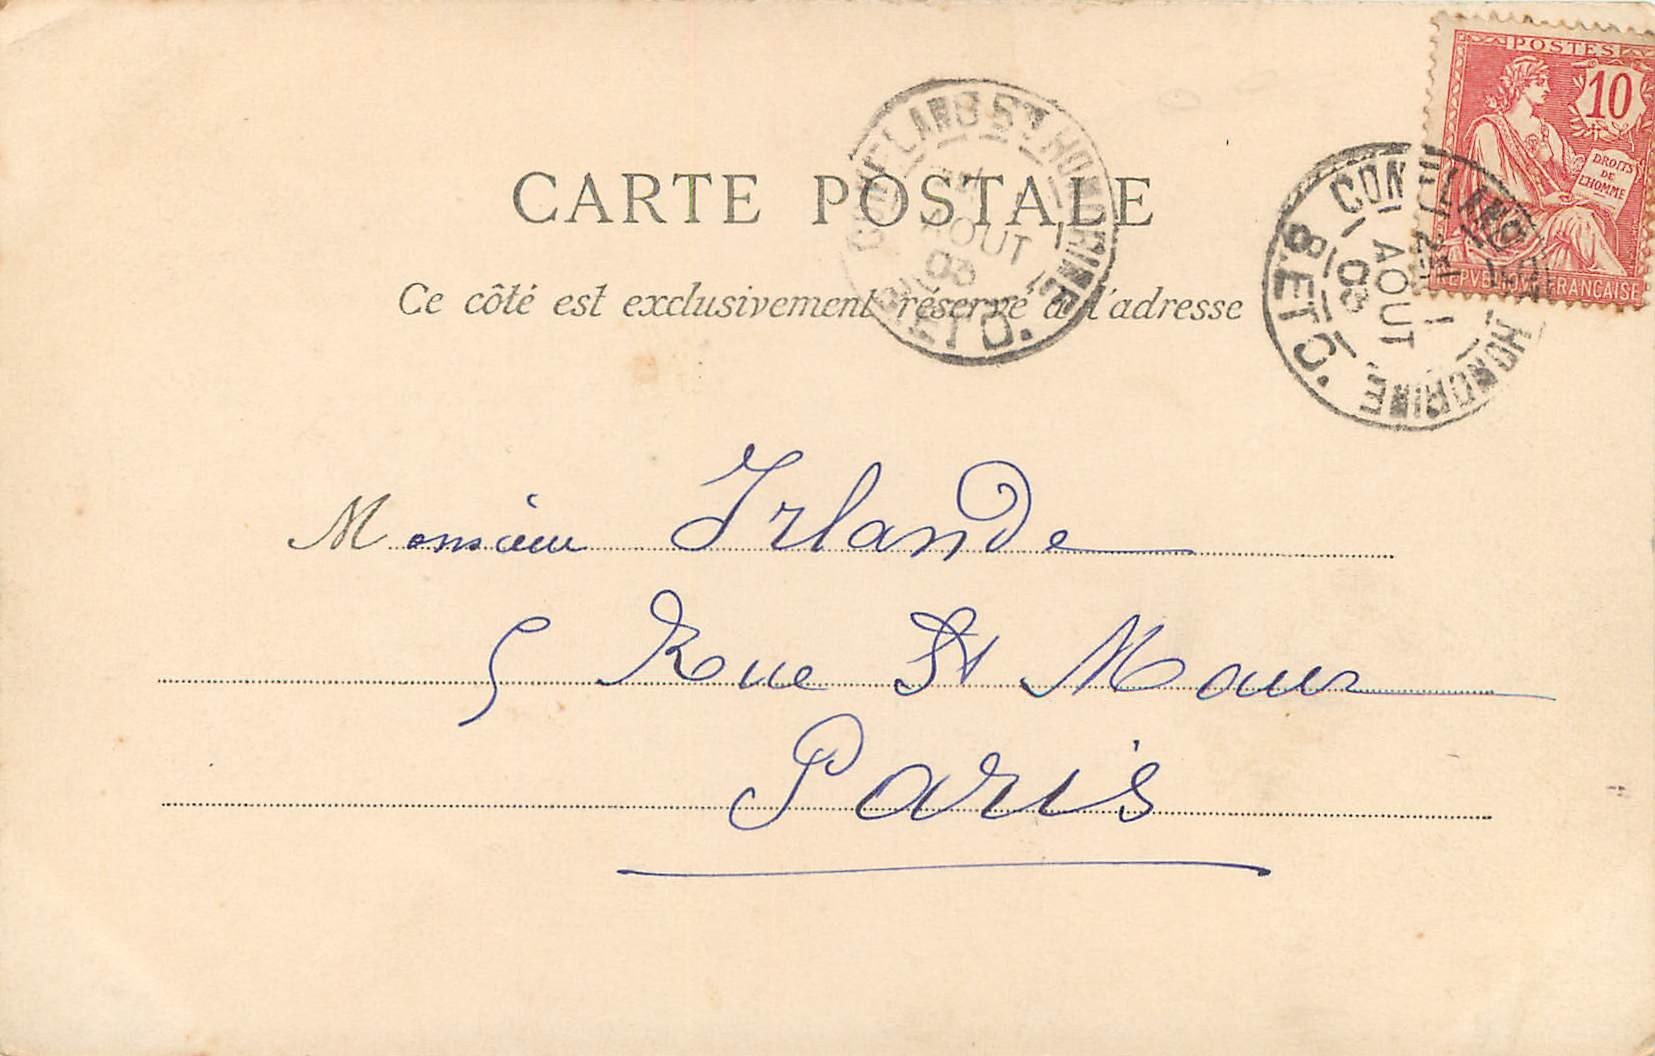 POSTES
10
DROITS
DE
L'HOMME
CARTE POSTALE
Ce côté est exclusivement réservé à l'adresse
CONFLANS STE HONORINE
AOUT
03
S. ET O.
CONFLANS STE HONORINE
AOUT
03
S. ET O.
Monsieur Irlande
5 Rue St Maur
Paris